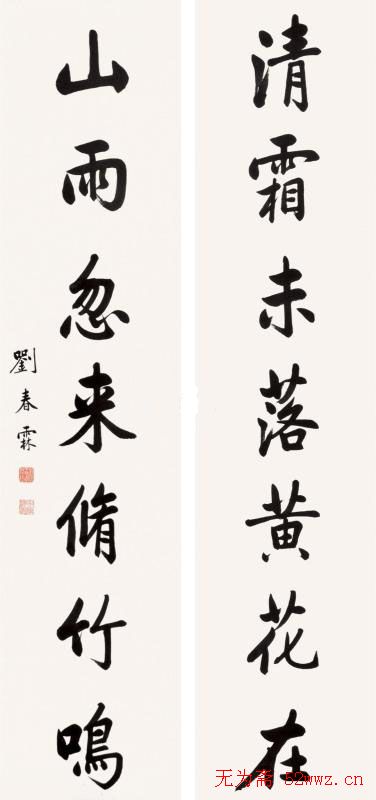 清霜未落黄花在
山雨忽来脩竹鳴
劉春霖
无为斋 52wwz.cn